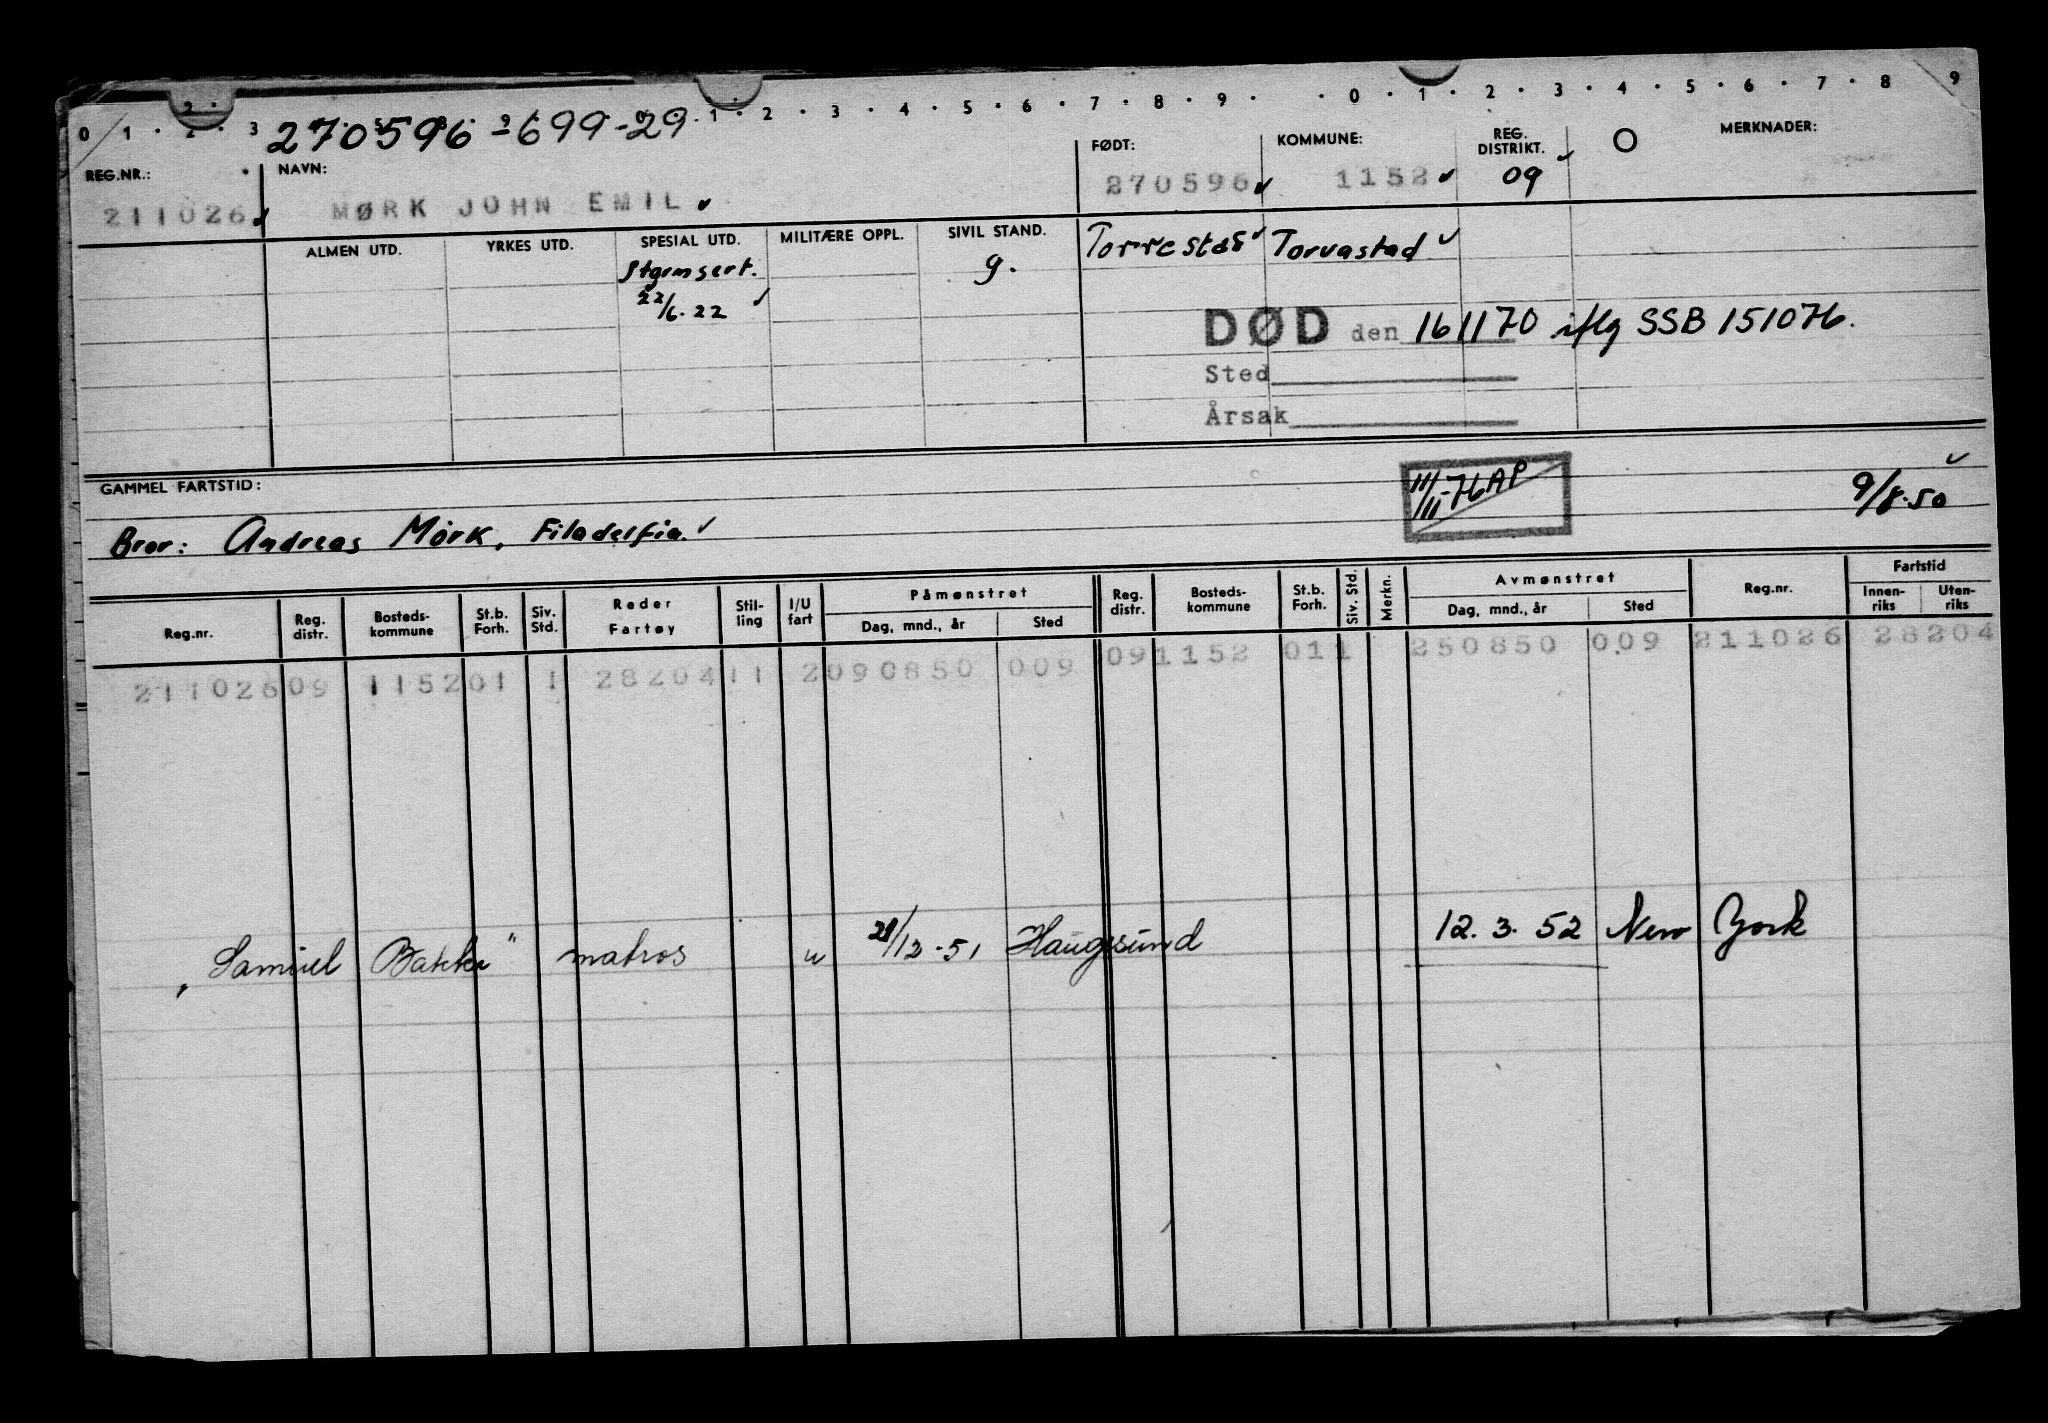 0 / 1 · 2 · 3 · 1 · 2 · 3 · 4 · 5 · 6 · 7 · 8 · 9 · · 0 · 1 · 2 · 3 · 4 · 5 · 6 · 7 · 8 9
270596-699-29
REG.NR.: NAVN: FØDT: KOMMUNE: REG. DISTRIKT. O MERKNADER:
211026 MØRK JOHN EMIL 270596 1152 09
ALMEN UTD. YRKES UTD. SPESIAL UTD. MILITÆRE OPPL. SIVIL STAND.
g. Torvastad
22/6.22
DØD den 161170 iflg SSB 151076.
Sted
Årsak
GAMMEL FARTSTID:
III/II-76 AP
9/8.50
Bror: Andreas Mørk, Filadelfia.
Reg.nr. Reg. distr. Bosteds-kommune St.b. Forh. Siv. Std. Reder Fartøy Stil-ling I/U fart Påmønstret Dag, mnd., år Sted Reg. distr. Bosteds-kommune St.b. Forh. Siv. Std. Merkn. Avmønstret Dag, mnd., år Sted Reg.nr. Fartstid Innen-riks Uten-riks
211026 09 1152 01 1 28204 11 2 090850 009 09 1152 01 1 250850 009 211026 28204
"Samuel Bakke" matros u 21/12-51 Haugesund 12.3.52 New York